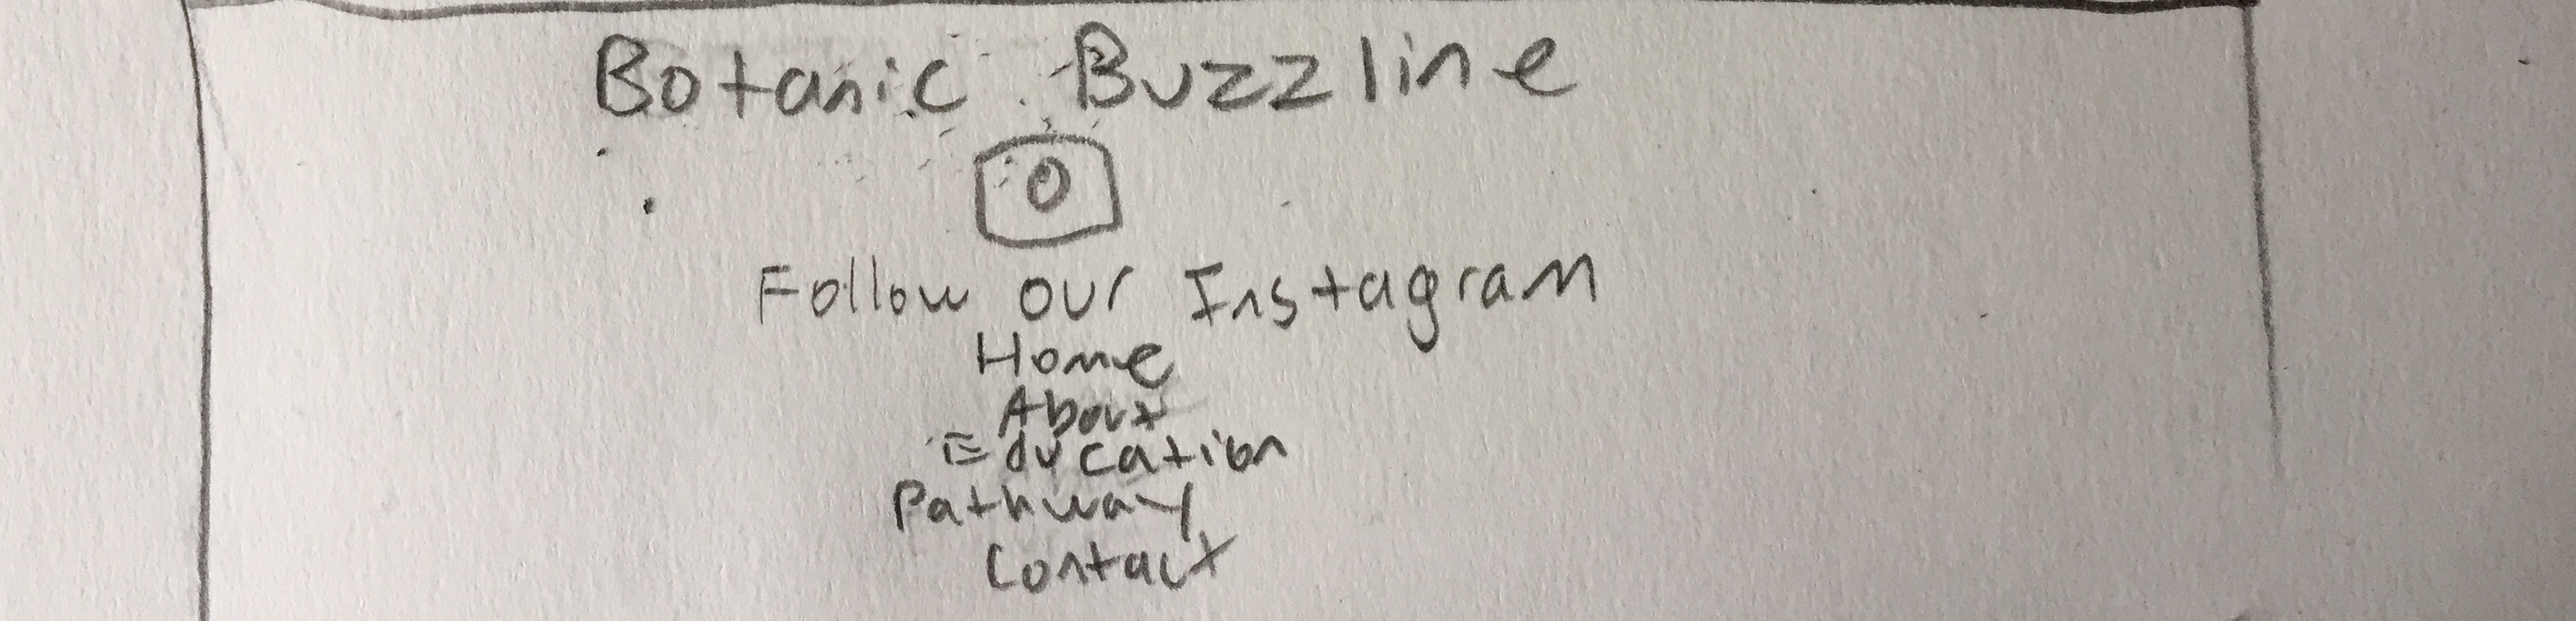 Botanic Buzzline
Follow our Instagram
Home
About
Education
Pathway
Contact